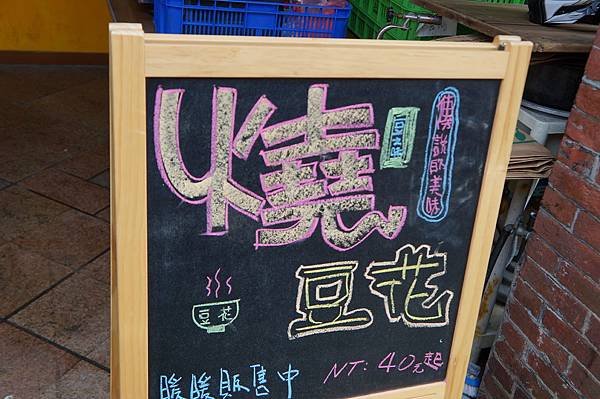 燒
豆之味
傳說的美味
豆花
豆花
暖暖販售中
NT: 40元起